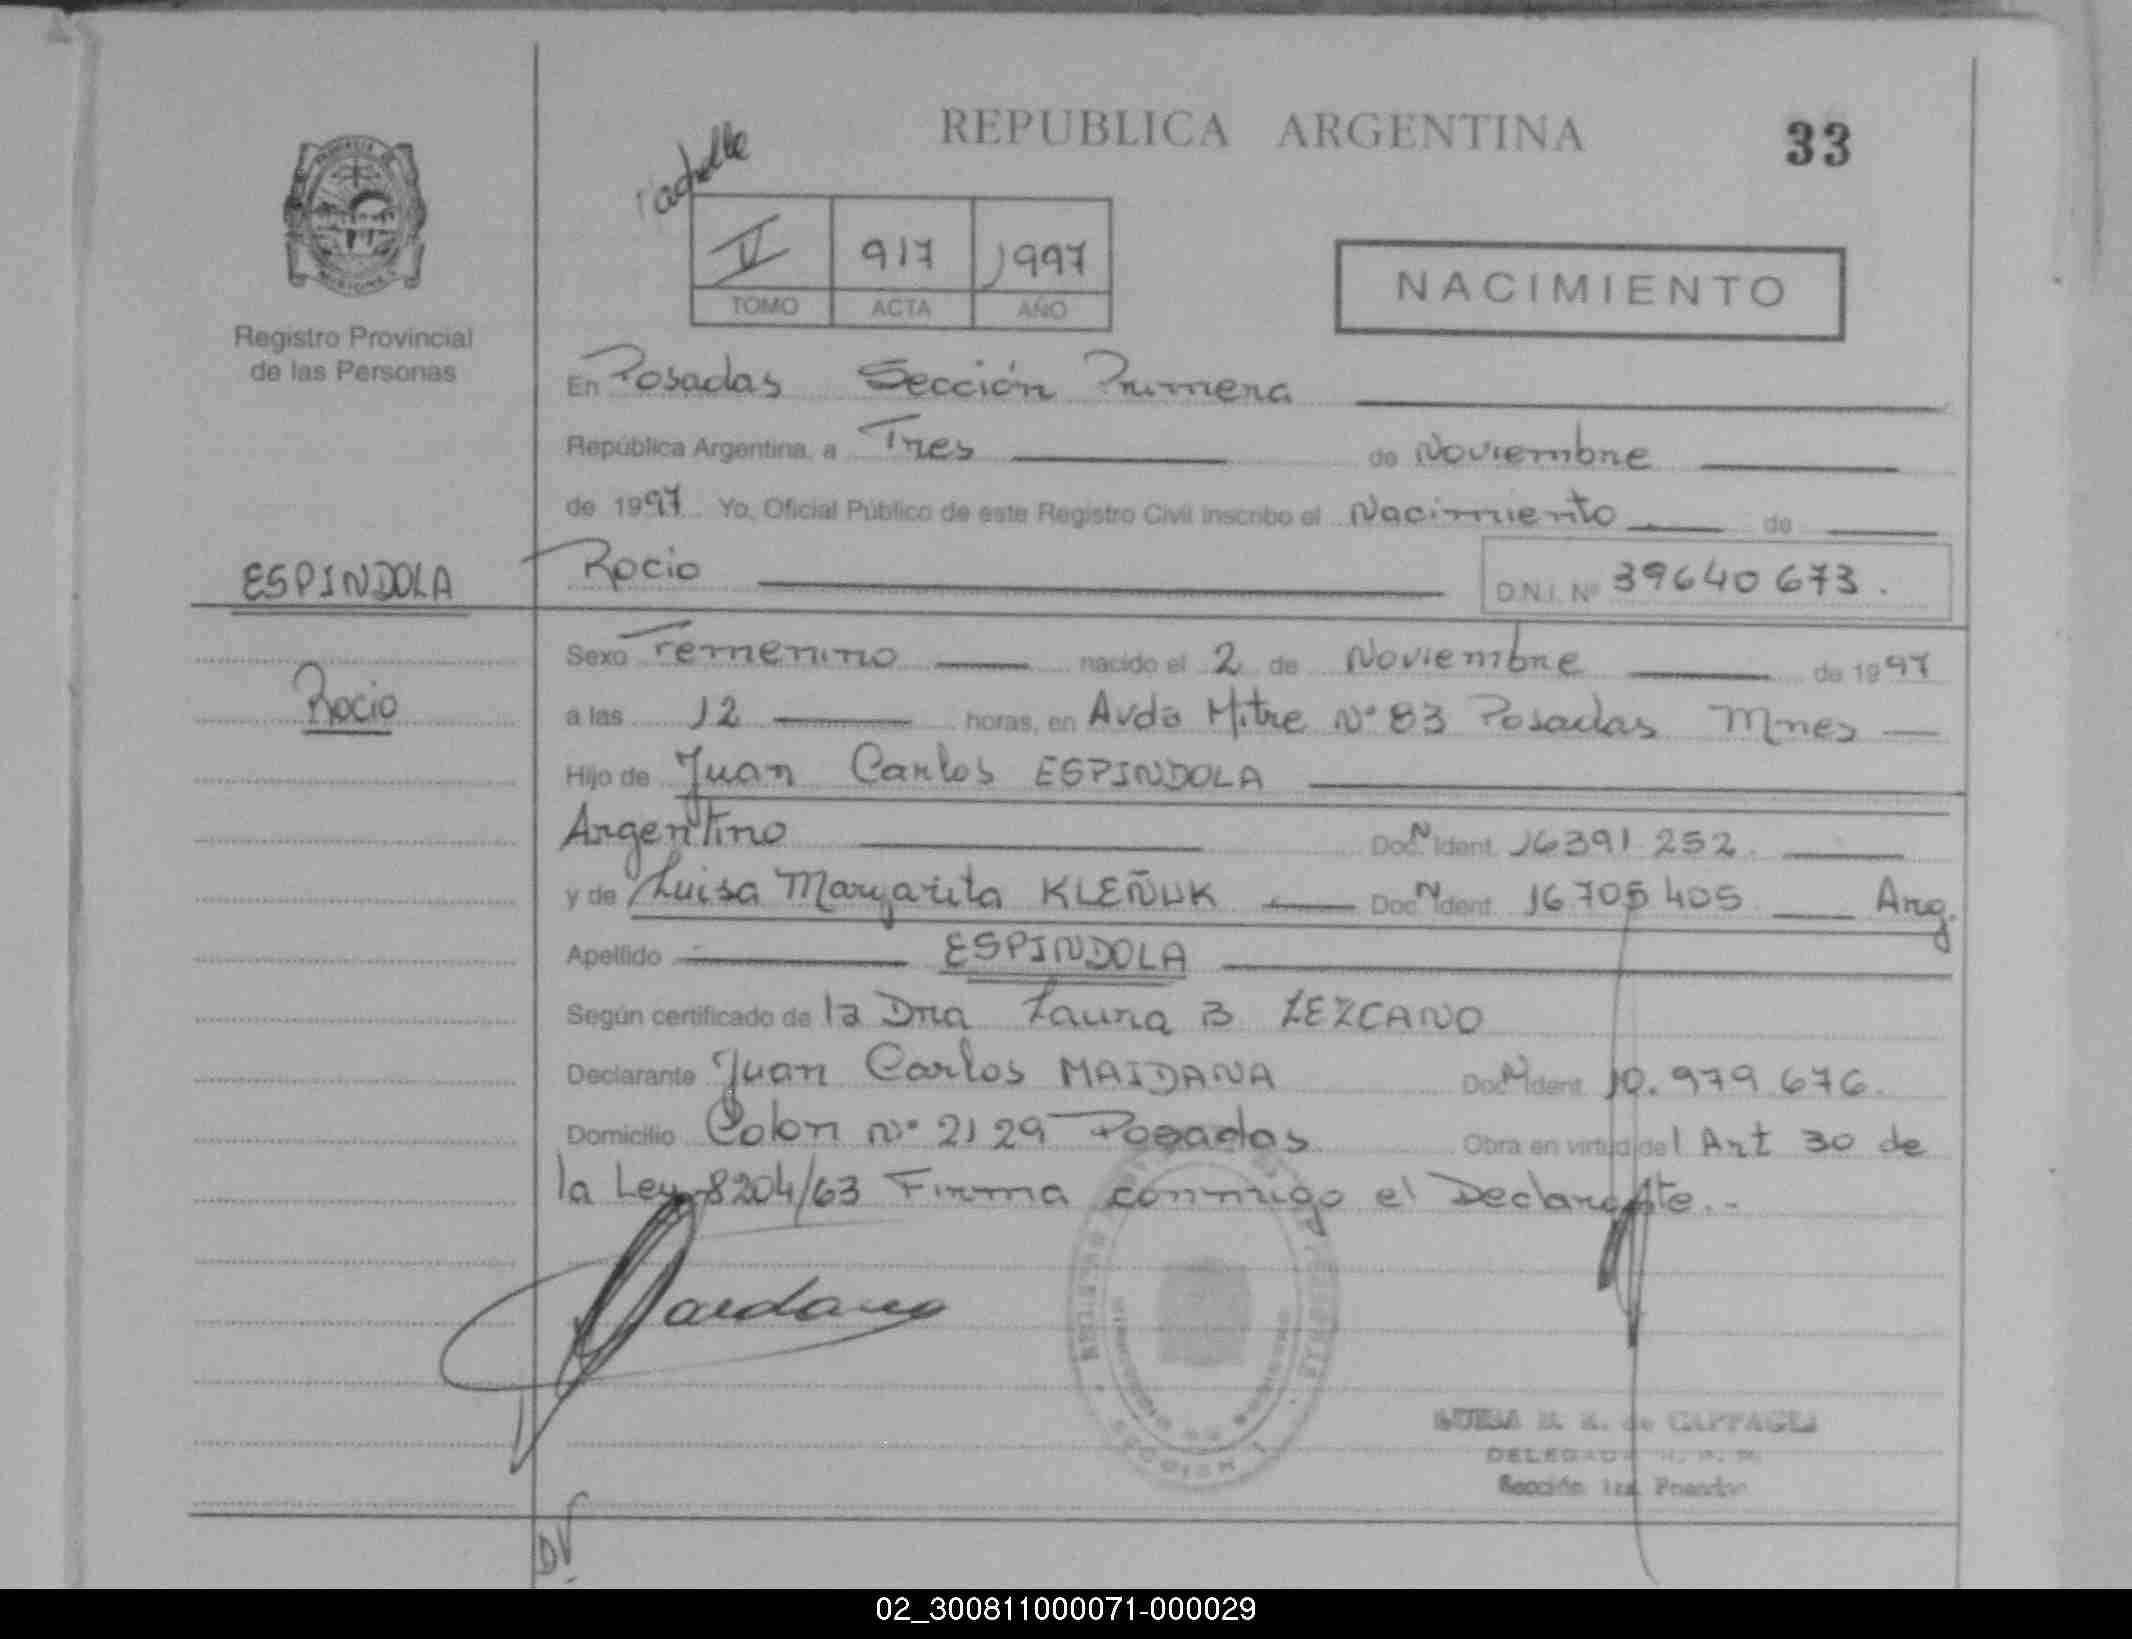 REPUBLICA ARGENTINA
33
V 917 1997
TOMO ACTA AÑO
NACIMIENTO
Registro Provincial
de las Personas
En Posadas Sección Primera
República Argentina, a Tres de Noviembre
de 1997 Yo, Oficial Público de este Registro Civil inscribo el Nacimiento de
ESPINDOLA
Rocio D.N.I. Nº 39640673.
Sexo Femenino nacido el 2 de Noviembre de 1997
Rocio
a las 12 horas, en Avda Mitre Nº 83 Posadas Mnes
Hijo de Juan Carlos ESPINDOLA
Argentino Doc. N Ident. 16391.252.
y de Luisa Margarita KLEÑUK Doc. N Ident. 16705405 Arg.
Apellido ESPINDOLA
Según certificado de la Dra Laura B LEZCANO
Declarante Juan Carlos MAIDANA Doc. N Ident. 10.979.676.
Domicilio Colon Nº 2129 Posadas Obra en virtud del Art 30 de
la Ley 8204/63 Firma conmigo el Declarante..
de CAPPAGLI
Sección 1ra. Posadas
02_300811000071-000029